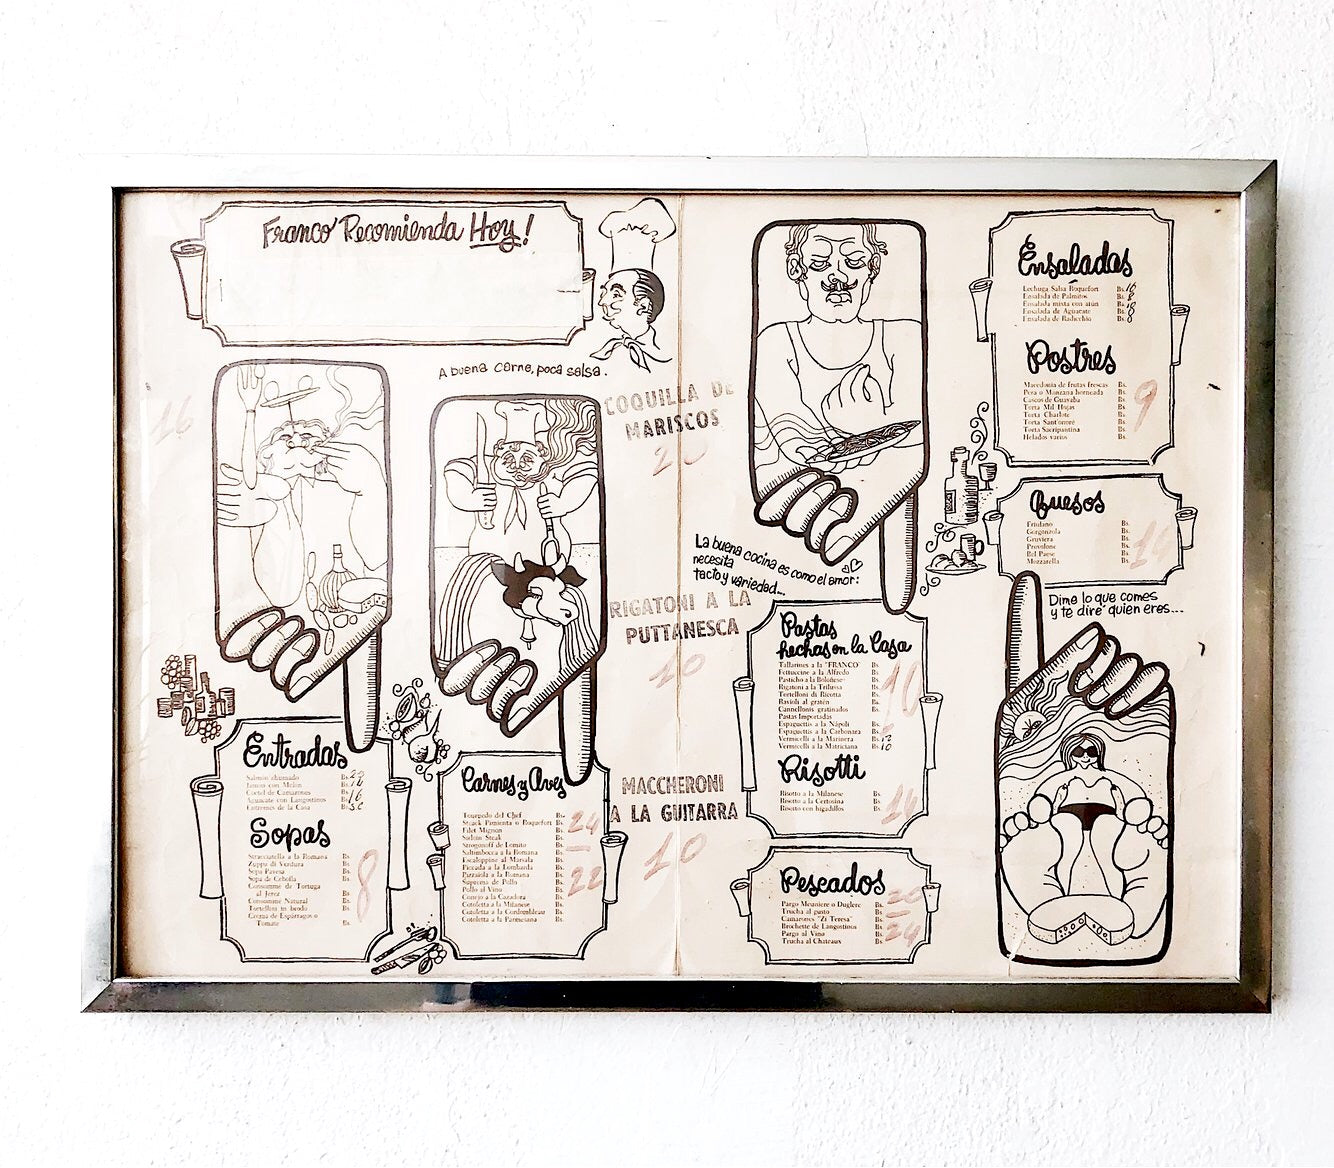 Franco Recomienda Hoy!
A buena carne, poca salsa.
16
COQUILLA DE
MARISCOS
20
RIGATONI A LA
PUTTANESCA
10
MACCHERONI
A LA GUITARRA
10
Entradas
Salmón ahumado Bs. 20
Jamón con Melón Bs. 16
Coctel de Camarones Bs.
Aguacate con Langostinos Bs. 16
Entremes de la Casa Bs.
Sopas
Stracciatella a la Romana Bs.
Zuppa di Verdura Bs.
Sopa Pavesa Bs.
Sopa de Cebolla Bs.
Consomme de Tortuga
al Jerez Bs.
Consommé Natural Bs.
Tortellini in brodo Bs.
Crema de Espárragos o
Tomate Bs.
8
Carnes y Aves
Tournedo del Chef Bs.
Steack Pimienta o Roquefort Bs.
Filet Mignon Bs.
Sirloin Steak Bs.
Strogonoff de Lomito Bs.
Saltimbocca a la Romana Bs.
Escaloppine al Marsala Bs.
Piccada a la Lombarda Bs.
Pizzaiola a la Romana Bs.
Suprema de Pollo Bs.
Pollo al Vino Bs.
Conejo a la Cazadora Bs.
Cotoletta a la Milanese Bs.
Cotoletta a la Cordonbleau Bs.
Cotoletta a la Parmesana Bs.
24
22
La buena cocina es como el amor:
necesita
tacto y variedad...
Pastas
hechas en la Casa
Tallarines a la "FRANCO" Bs.
Fettuccine a la Alfredo Bs.
Pasticho a la Boloñese Bs.
Rigatoni a la Trifulsa Bs.
Tortelloni di Ricotta Bs.
Ravioli al gratén Bs.
Cannellonis gratinados Bs.
Pastas Importadas
Espaguettis a la Nápoli Bs.
Espaguettis a la Carbonara Bs.
Vermicelli a la Marinera Bs. 12
Vermicelli a la Matriciana Bs. 10
10
Risotti
Risotto a la Milanese Bs.
Risotto a la Certosina Bs.
Risotto con higadillos Bs.
16
Pescados
Pargo Meuniere o Duglere Bs.
Trucha al gusto Bs.
Camarones "Zi Teresa" Bs.
Brochette de Langostinos Bs.
Pargo al Vino Bs.
Trucha al Chateaux Bs.
20
24
Ensaladas
Lechuga Salsa Roquefort Bs. 10
Ensalada de Palmitos Bs. 8
Ensalada mixta con atún Bs.
Ensalada de Aguacate Bs. 8
Ensalada de Radicchio Bs. 8
Postres
Macedonia de frutas frescas Bs.
Pera o Manzana horneada Bs.
Cascos de Guayaba Bs.
Torta Mil Hojas Bs.
Torta Charlote Bs.
Torta Sant'onoré Bs.
Torta Sacripantina Bs.
Helados varios Bs.
9
Quesos
Friulano Bs.
Gorgonzola Bs.
Gruviera Bs.
Provolone Bs.
Bel Paese Bs.
Mozzarella Bs.
Dime lo que comes
y te diré quien eres...